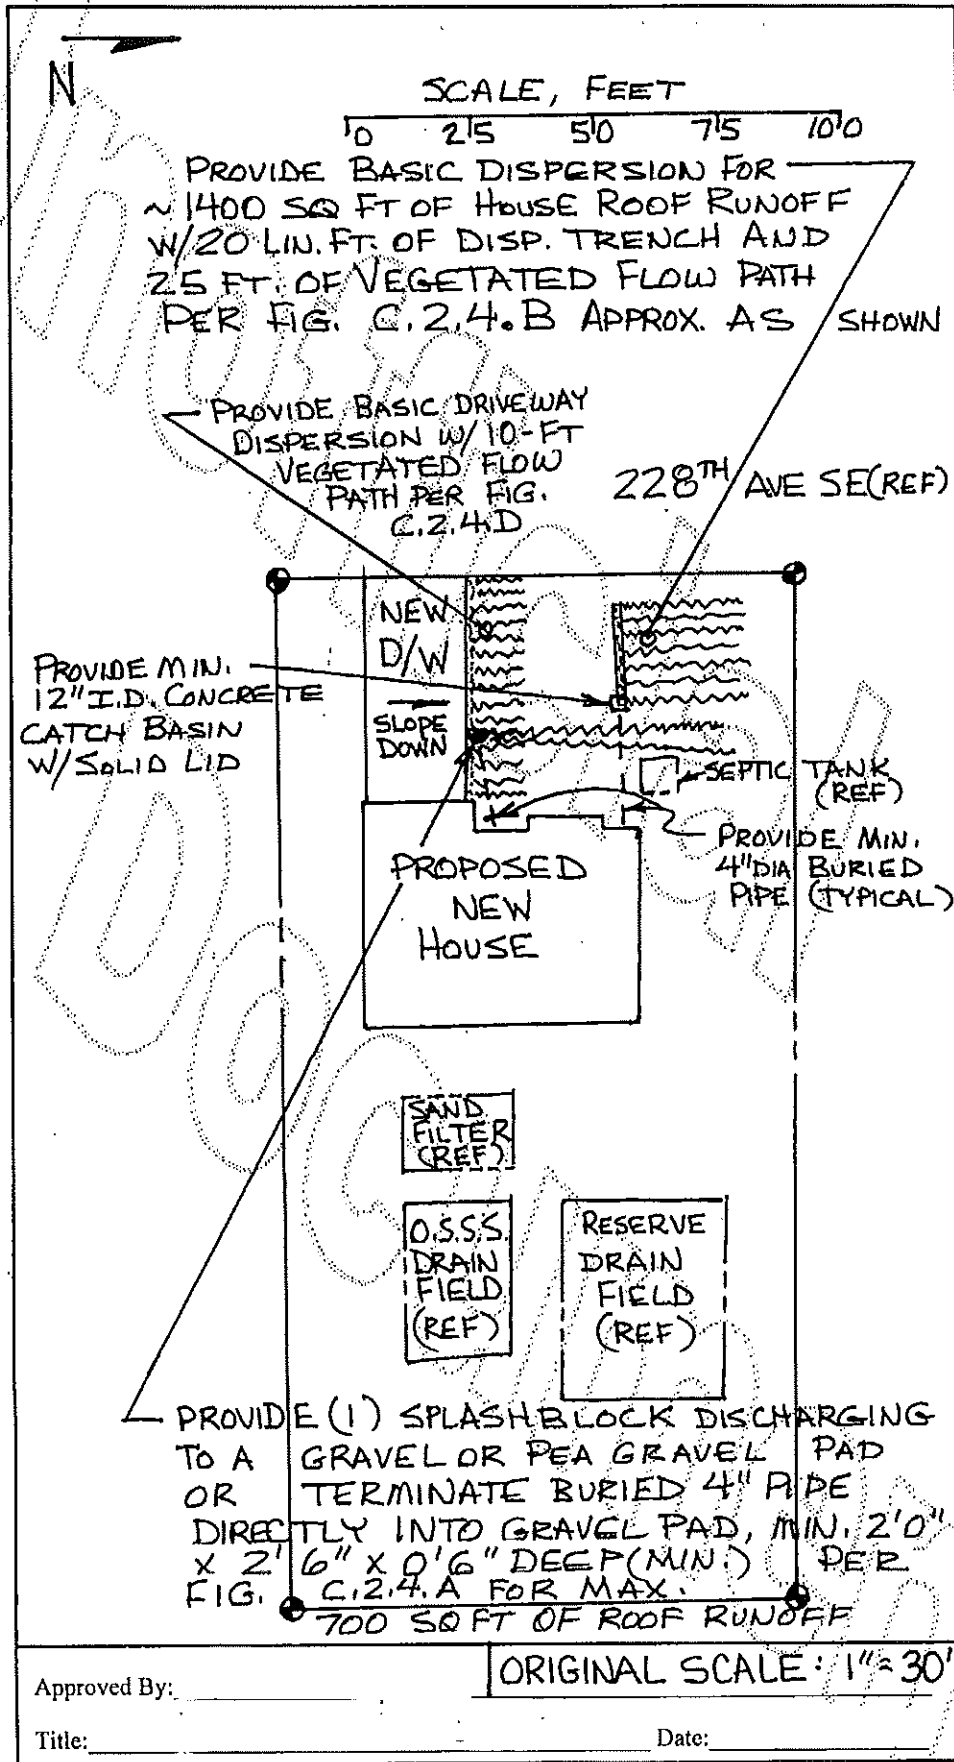 N
SCALE, FEET
0 25 50 75 100
PROVIDE BASIC DISPERSION FOR
~1400 SQ FT OF HOUSE ROOF RUNOFF
W/20 LIN. FT. OF DISP. TRENCH AND
25 FT. OF VEGETATED FLOW PATH
PER FIG. C.2.4.B APPROX. AS SHOWN
PROVIDE BASIC DRIVEWAY
DISPERSION W/10-FT
VEGETATED FLOW
PATH PER FIG.
C.2.4.D
228TH AVE SE(REF)
NEW
D/W
SLOPE
DOWN
PROVIDE MIN.
12" I.D. CONCRETE
CATCH BASIN
W/SOLID LID
SEPTIC TANK
(REF)
PROVIDE MIN.
4"DIA BURIED
PIPE (TYPICAL)
PROPOSED
NEW
HOUSE
SAND
FILTER
(REF)
O.S.S.S.
DRAIN
FIELD
(REF)
RESERVE
DRAIN
FIELD
(REF)
PROVIDE (1) SPLASHBLOCK DISCHARGING
TO A GRAVEL OR PEA GRAVEL PAD
OR TERMINATE BURIED 4" PIPE
DIRECTLY INTO GRAVEL PAD, MIN. 2'0"
X 2'6" X 0'6" DEEP (MIN.) PER
FIG. C.2.4.A FOR MAX.
700 SQ FT OF ROOF RUNOFF
ORIGINAL SCALE: 1"=30'
Approved By:
Title: Date: